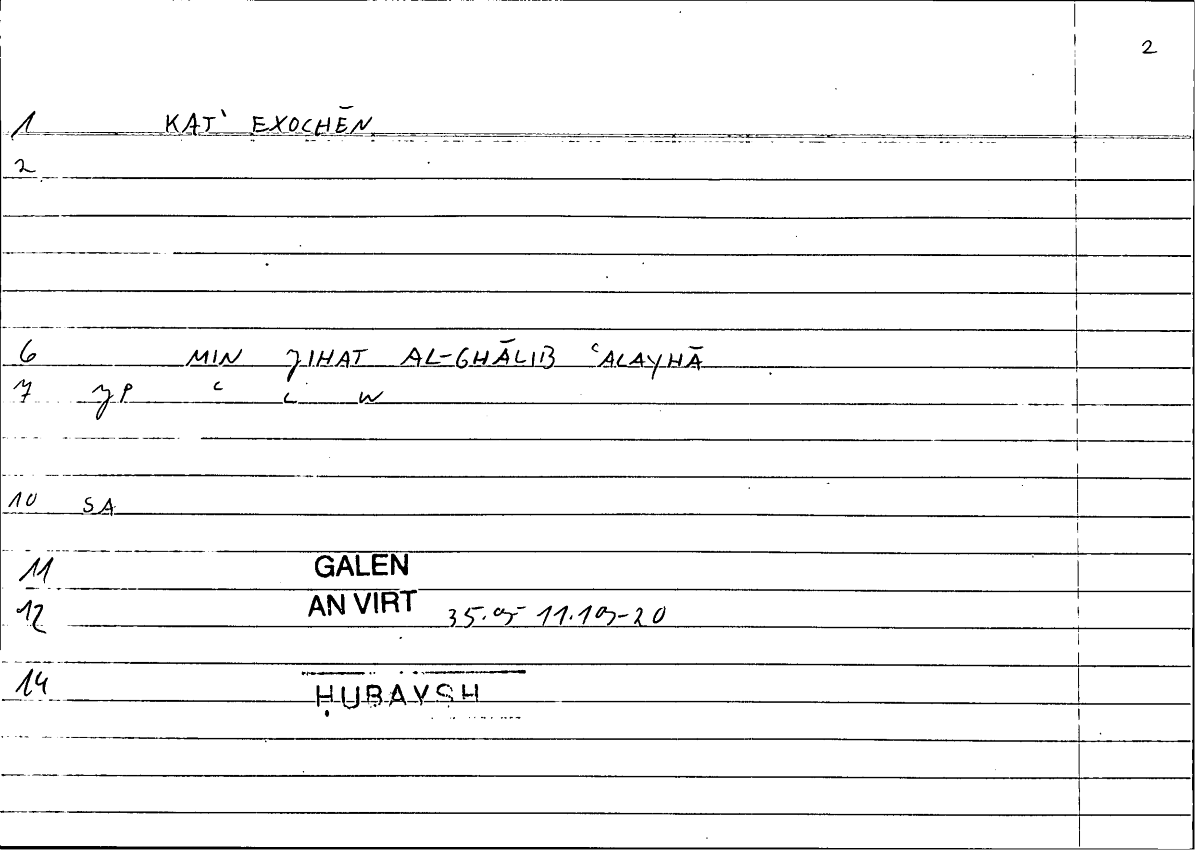 2
1 KAT' EXOCHĒN
2
6 MIN JIHAT AL-GHĀLIB ʿALAYHĀ
7 JP ʿ L W
10 SA
11 GALEN
12 AN VIRT 35.9- 11.19-20
14 ḤUBAYSH